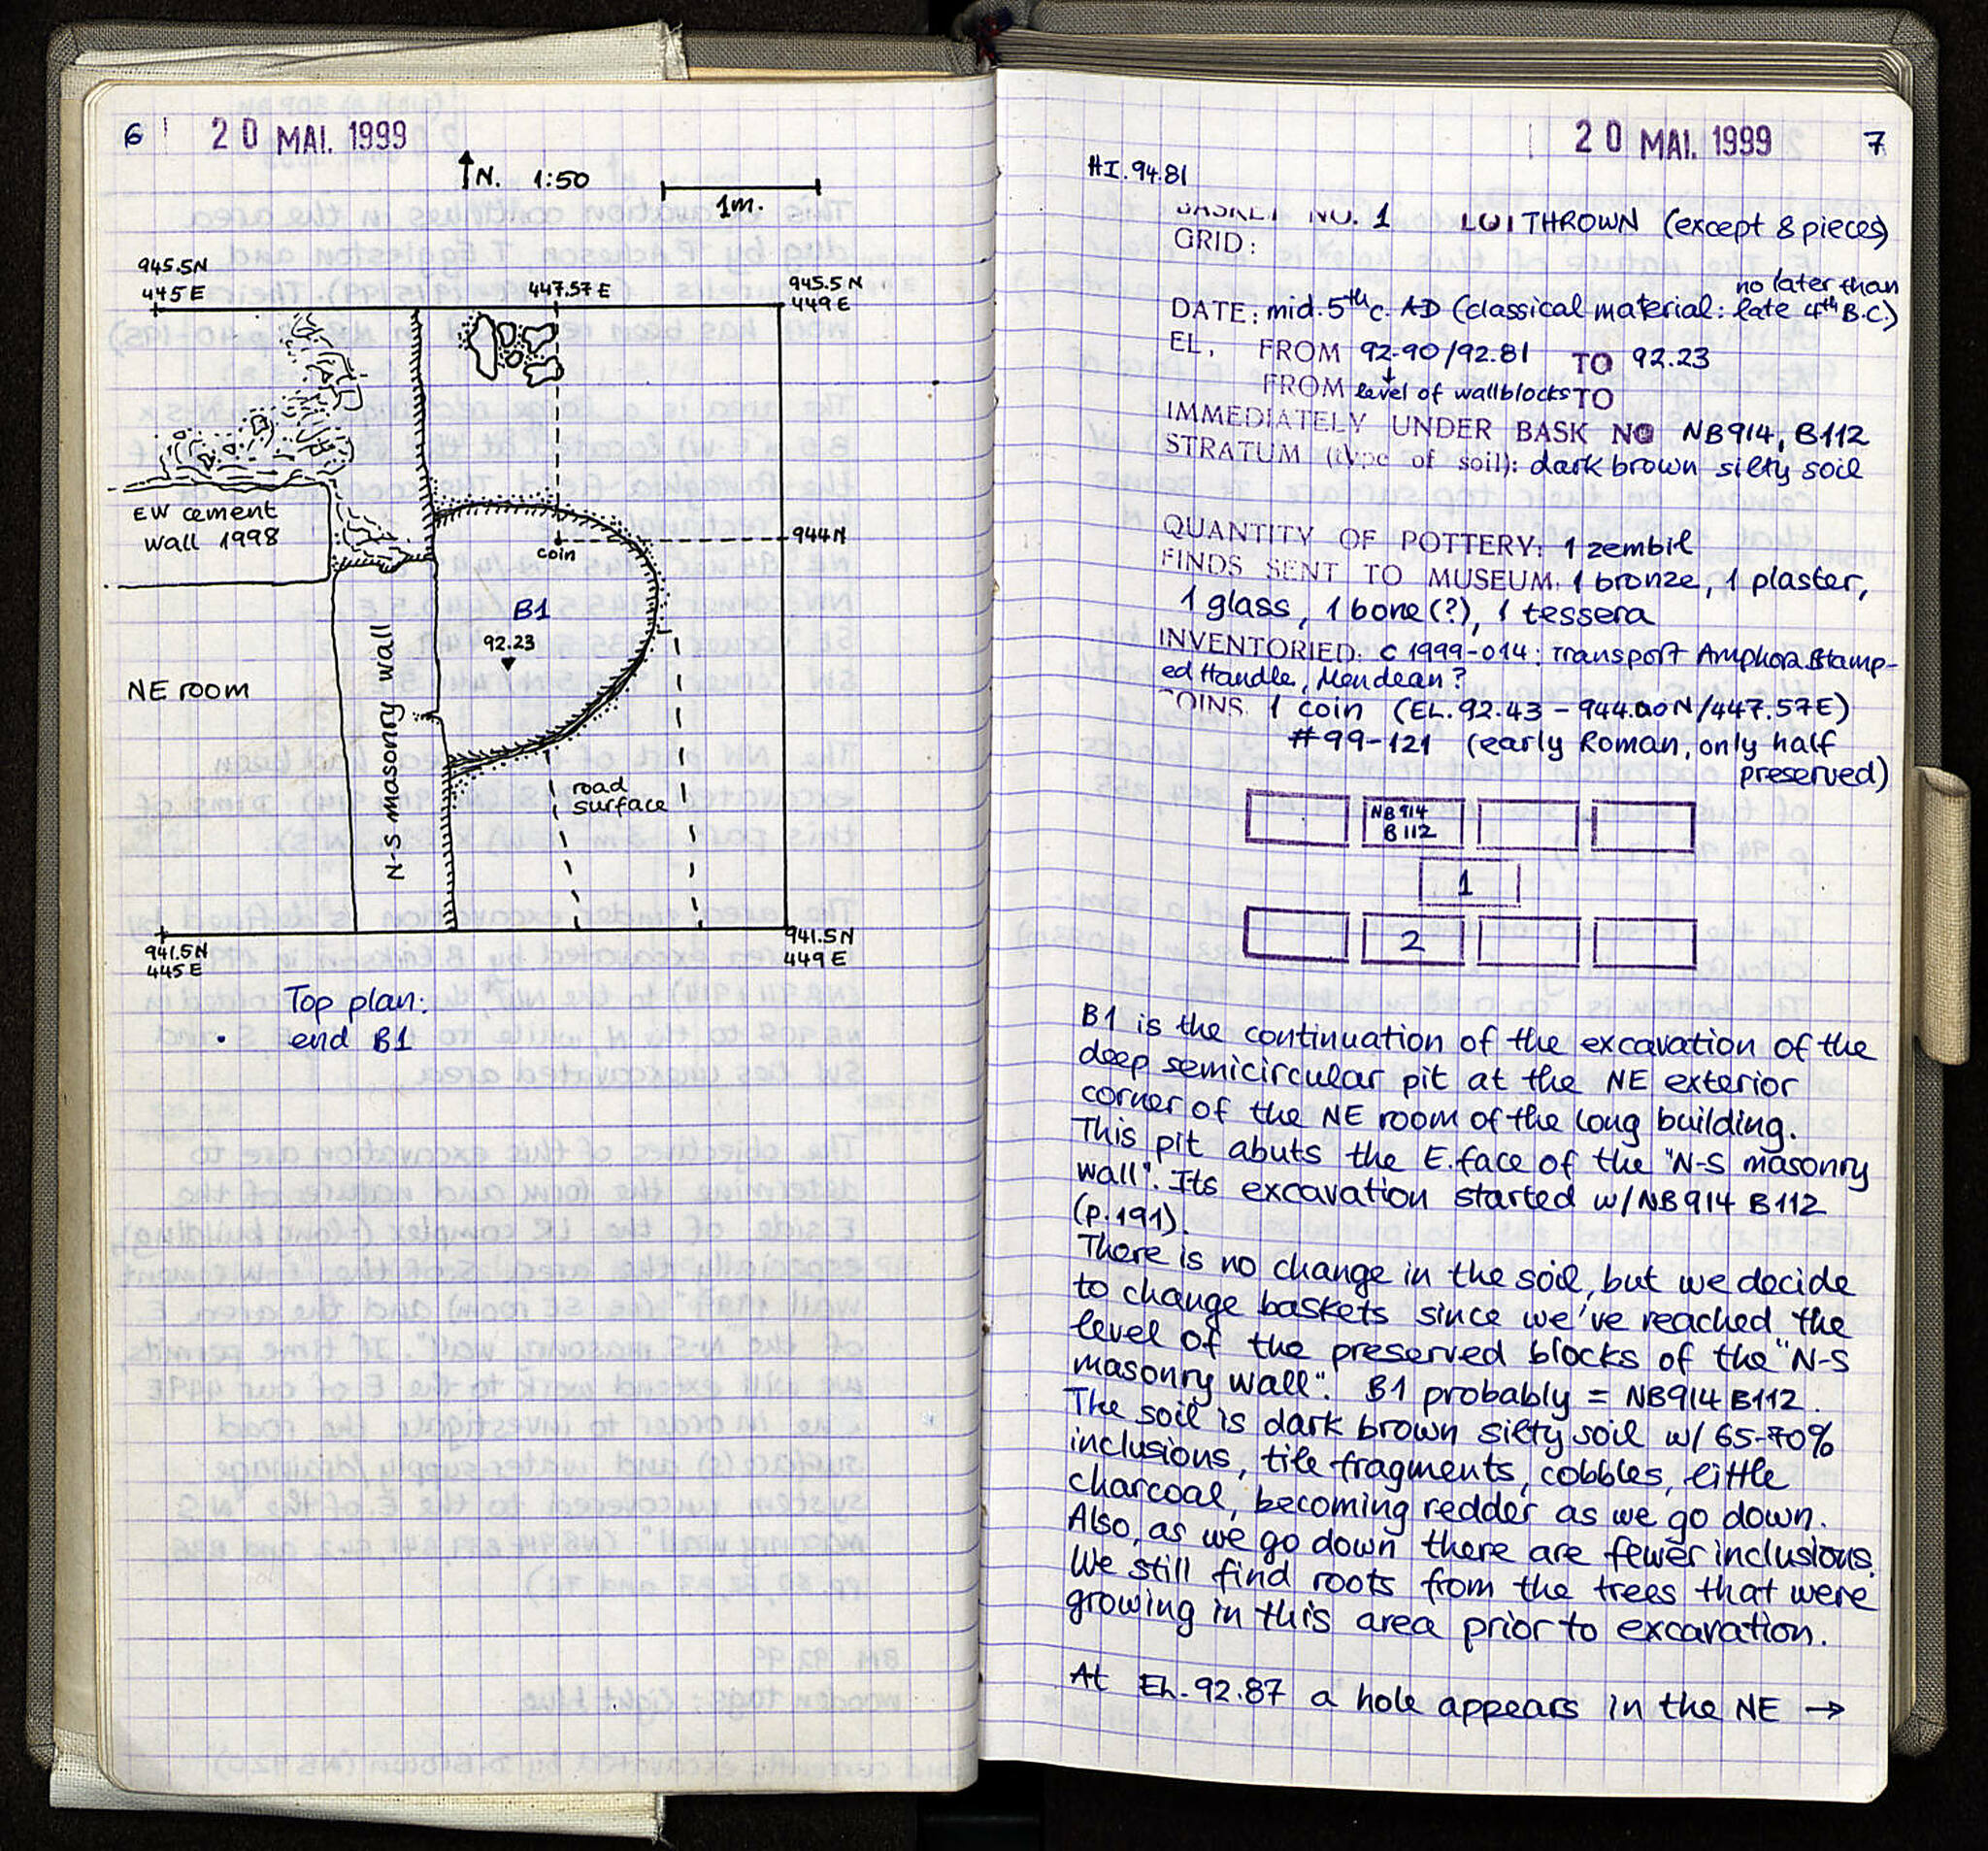 6 20 MAI. 1999
N. 1:50
1m.
945.5N
445E
447.57E
945.5N
449E
EW cement
wall 1998
coin
944N
B1
92.23
NE room
N-S masonry wall
road
surface
941.5N
445E
941.5N
449E
Top plan:
end B1
20 MAI. 1999 7
HI. 94.81
BASKET NO. 1 LOT THROWN (except 8 pieces)
GRID:
no later than
DATE: mid. 5th c. AD (classical material: late 4th B.C.)
EL. FROM 92.90/92.81 TO 92.23
FROM level of wallblocks TO
IMMEDIATELY UNDER BASK NO NB914, B112
STRATUM (type of soil): dark brown silty soil
QUANTITY OF POTTERY: 1 zembil
FINDS SENT TO MUSEUM: 1 bronze, 1 plaster,
1 glass, 1 bone(?), 1 tessera
INVENTORIED: C 1999-014: Transport Amphora Stamp-
ed Handle, Mendean?
COINS. 1 coin (EL. 92.43 - 944.00N/447.57E)
#99-121 (early Roman, only half
preserved)
NB914
B112
1
2
B1 is the continuation of the excavation of the
deep semicircular pit at the NE exterior
corner of the NE room of the long building.
This pit abuts the E. face of the "N-S masonry
wall". Its excavation started w/NB914 B112
(p.191).
There is no change in the soil, but we decide
to change baskets since we've reached the
level of the preserved blocks of the "N-S
masonry wall". B1 probably = NB914 B112.
The soil is dark brown silty soil w/ 65-70%
inclusions, tile fragments, cobbles, little
charcoal, becoming redder as we go down.
Also, as we go down there are fewer inclusions.
We still find roots from the trees that were
growing in this area prior to excavation.
At EL. 92.87 a hole appears in the NE →